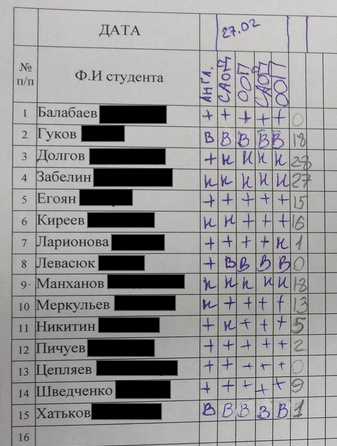 ДАТА 27.02
№ п/п Ф.И студента Англ. САОД ООП САОД ООП
1 Балабаев + + + + + 0
2 Гуков В В В В В 18
3 Долгов + н н н н 28
4 Забелин н н н н н 27
5 Егоян + + + + + 15
6 Киреев н н + + + 16
7 Ларионова + + + + н 1
8 Левасюк + В В В В 0
9 Манханов н н н н н 18
10 Меркульев н + + + + 13
11 Никитин + н + + + 5
12 Пичуев + + + + + 2
13 Цепляев + + + + + 0
14 Шведченко + + + + + 9
15 Хатьков В В В В В 1
16